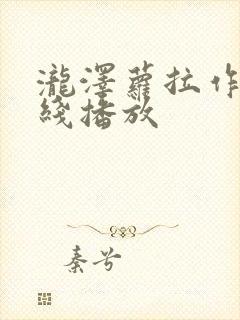 瀧澤蘿拉作
綫播放
秦兮